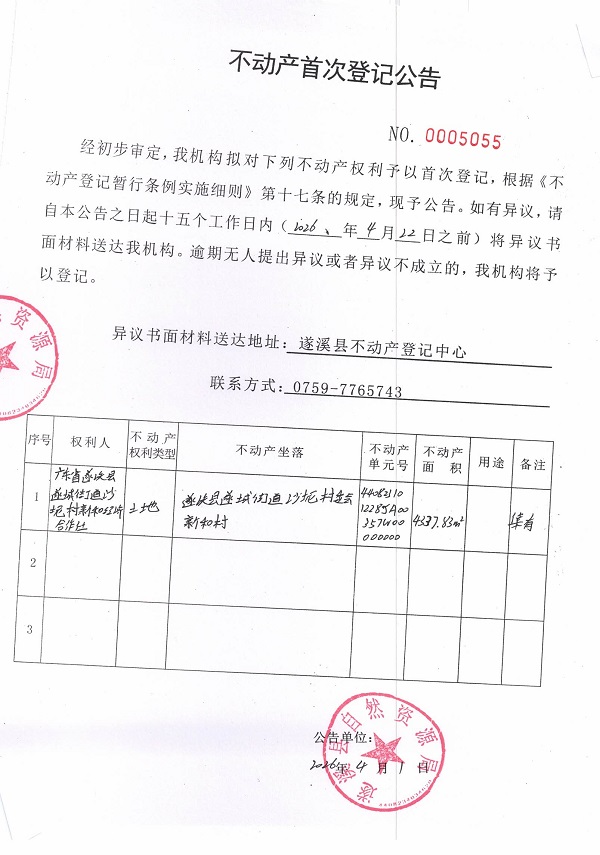 不动产首次登记公告
NO. 0005055
经初步审定，我机构拟对下列不动产权利予以首次登记，根据《不
动产登记暂行条例实施细则》第十七条的规定，现予公告。如有异议，请
自本公告之日起十五个工作日内（2026、年4月22日之前）将异议书
面材料送达我机构。逾期无人提出异议或者异议不成立的，我机构将予
以登记。
资源局
异议书面材料送达地址：遂溪县不动产登记中心
联系方式：0759-7765743
序号 权利人 不动产权利类型 不动产坐落 不动产单元号 不动产面积 用途 备注
1
广东省遂溪县
遂城街道沙
坭村新和经济
合作社
土地
遂溪县遂城街道沙坭村委会
新和村
44082310
Ccode
4337.83m²
集有
2
3
公告单位：
2026年4月1日
遂溪县自然资源局